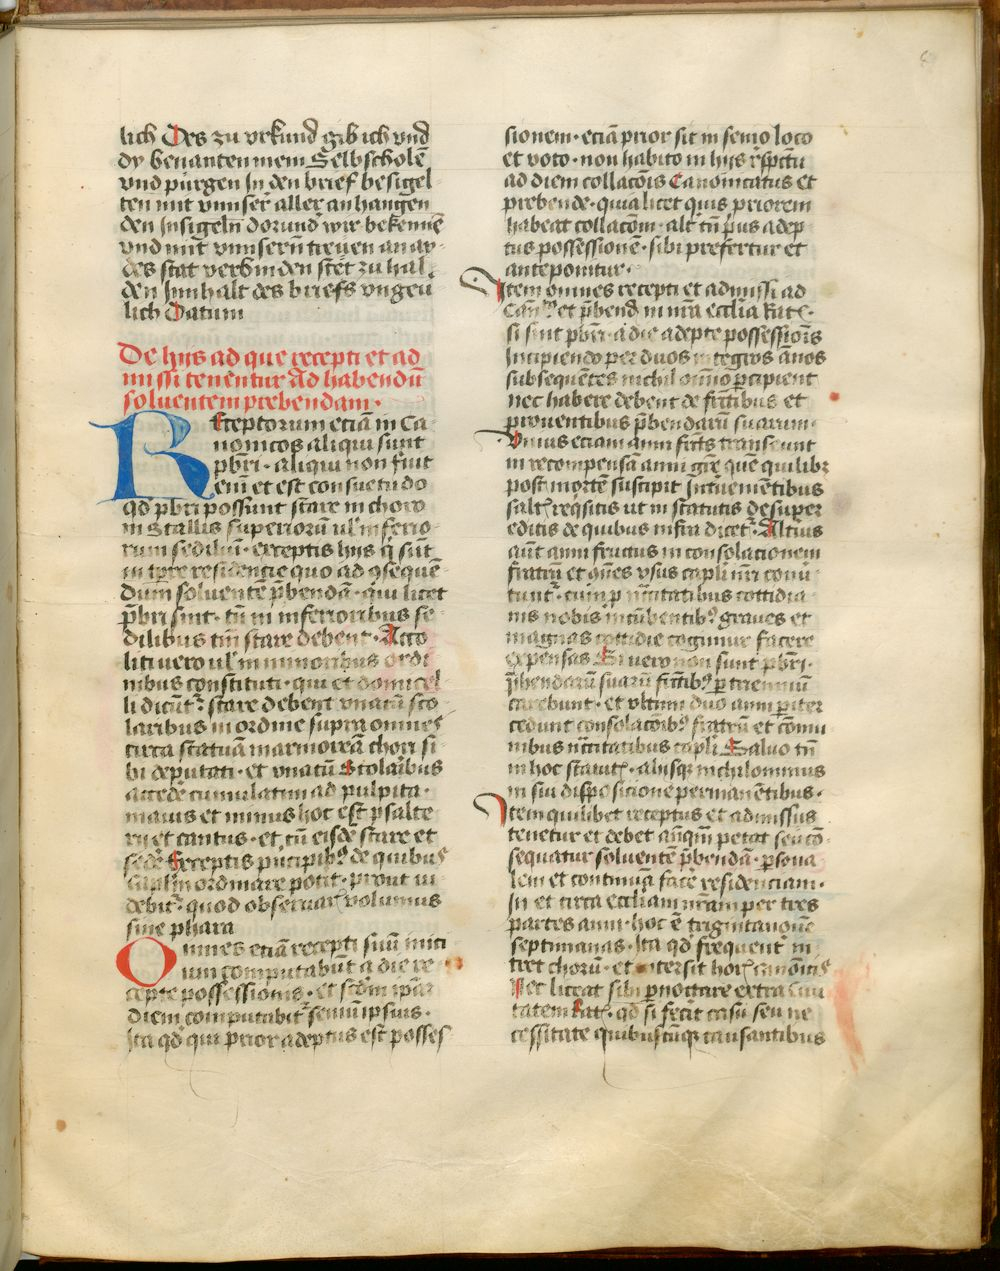 lich Des zu vrkund gib ich vnd
dy benanten mein Selbscholẽ
vnd purgen In den brief besigel
ten mit vnnser aller anhangen
den Insigeln dorund wir bekennẽ
vnd mit vnnsern̄ treuen an ay
des stat verbinden stet zu hal
den Innhalt des briefs vngeũ
lich Datum
De hijs ad que recepti et ad
missi tenentur Ad habendũ
soluentem prebendam·
Receptorum etiã in Ca
nonicos aliqui sunt
pbr̃i· aliqui non fũit
Reni et est consuetudo
qd̃ pbr̃i possunt stare in choro
in Stallis superiorũ ul' inferio
rum sediliũ· exceptis hijs q̃ sũt
in tpr̃e residencie quo ad ɔsequẽ
dum soluentẽ p̃bendã· qui licet
p̃bri sint· tñ in inferioribus se
dilibus tm̃ stare debent· Acco
liti vero ul' in minoribus ordi
nibus constituti· qui et domicel
li dicũt᷑ stare debent vnacũ sco
laribus in ordine supra omnes
circa statuã marmoreã chori si
bi deputati· et vnacũ Scolaribus
accede᷑ cumulatim ad pulpita·
maius et minus hoc est psalte
rij et cantus· et cũ eisdẽ stare et
sede᷑ Exceptis p̃ncipibꝰ de quibus
Capl'm ordinare potit· prout vi
debit᷑· quod obseruar᷑ volumus
sine phara
Omnes etiã recepti suũ inici
um computabũt a die re
cepte possessionis· et scd̃m ip̃ar̃
diem computabit᷑ seniũ ipsius·
Ita qd̃ qui prior adeptus est posses
sionem· etiã prior sit in senio loco
et voto· non habito in hijs respc̃tu
ad diem collac̃ois Canonicatus et
prebende· quia licet quis priorem
habeat collac̃om· alt᷑ tñ p̃us adep
tus possessionẽ· sibi prefertur et
anteponitur·
Item omnes recepti et admissi ad
Can̄tꝰ et p̃bend in nr̃a eccl̃ia Rat᷑·
si sint pbr̃i· a die adepte possessiõis
Incipiendo per duos integros ãnos
subsequẽtes nichil oñio ꝑcipient
nec habere debent de fructibus et
prouentibus p̃bendarũ suarum·
Vnius etiam anni fruc̃ts transeunt
in recompensã anni gr̃e quẽ quilibꝫ
post mortẽ suscipit Intuenientibus
salt᷑ req̃sitis ut in statutis desuper
editis de quibus infra dicet᷑· Alti᷑us
aũt anni fructus in consolacionem
fratrũ et com̃es vsus capl'i nr̃i conũ
tunt᷑· cum ꝓ nc̃citatibus cottidia
nis nobis incũbentibꝰ graues et
magnas cottidie cogimur facere
expensas Si vero non sunt pbr̃i·
p̃bendarũ suarũ fruc̃tibꝰ ꝑ trienniũ
carebunt· et vltim̃ duo anni ꝑiter
cedunt consolac̃oibꝰ fratrũ et cõmu
nibus nc̃citatibus capl'i Saluo tñ
in hoc statut᷑· alijsqꝫ nichilominus
in sui disposicione permanẽtibus·
Item quilibet receptus et admissus
tenetur et debet añq̃m petat seu cõ
sequatur soluentẽ p̃bendã· ꝑsona
lem et continuã face᷑ residenciam·
In et circa eccl'iam nr̃am per tres
partes anni· hoc ẽ triginta nouẽ
septimanas· Ita qd̃ frequent᷑ in
tret chorũ· et intersit hor᷑ canonicꝭ
Nec liceat sibi p̃noctare extra Ciui
tatem Rat᷑· qd̃ si fecit casũ seu ne
cessitate quibuscũqꝫ causantibus